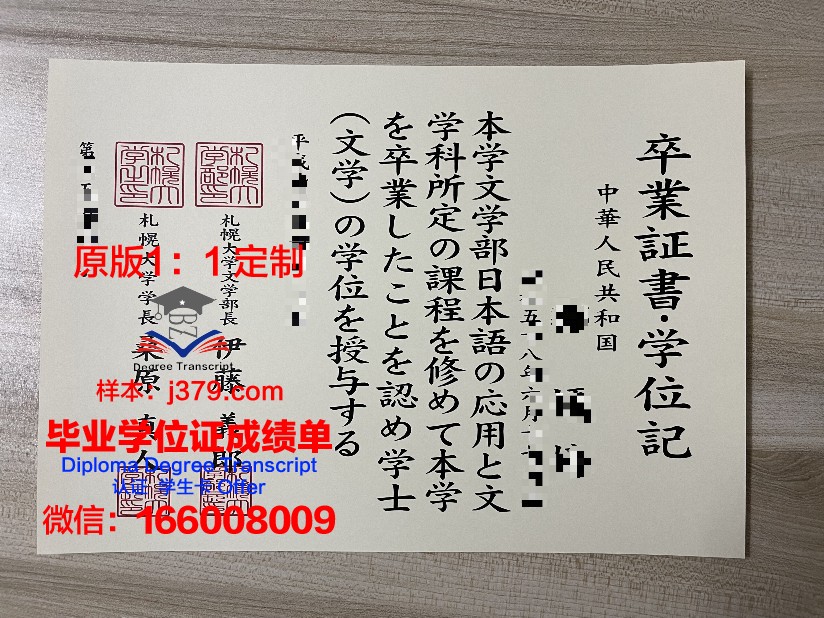 卒業証書・学位記
中華人民共和国
本学文学部日本語の応用と文
学科所定の課程を修めて本学
を卒業したことを認め学士
(文学)の学位を授与する
札幌大学文学部長 伊藤義郎
札幌大学学長 桑原真人
原版1：1定制
Degree Transcript
样本：j379.com
毕业学位证成绩单
Diploma Degree Transcript
认证 学生卡 Offer
微信：166008009